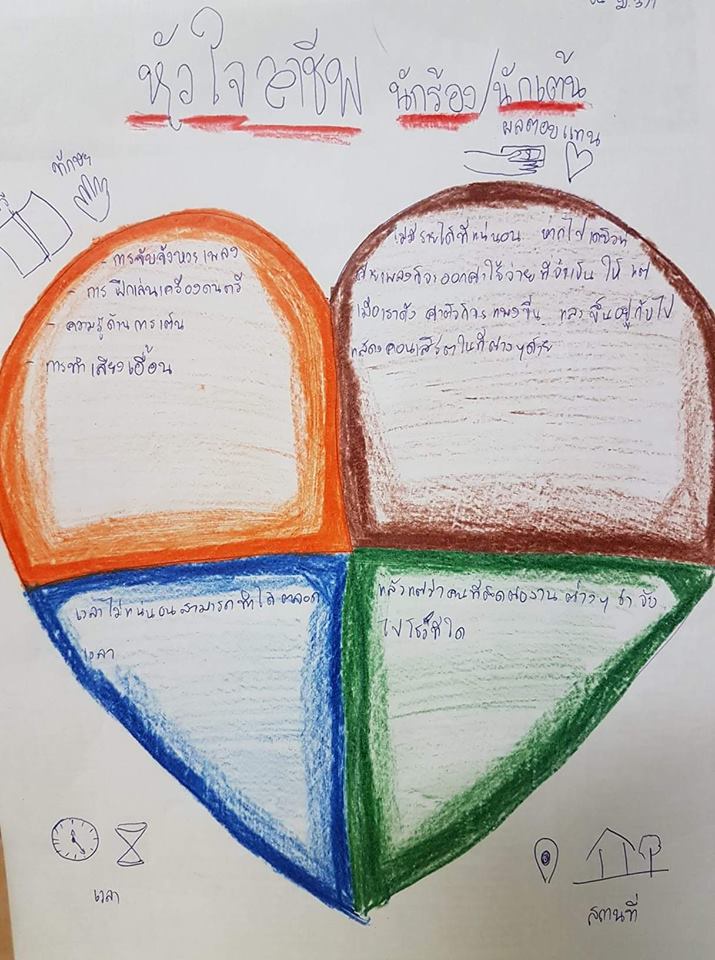 ม.3/1
หัวใจอาชีพ นักร้อง/นักเต้น
ผลตอบแทน
ทักษะ
- การจับจังหวะเพลง
- การฝึกเล่นเครื่องดนตรี
- ความรู้ด้านการเต้น
- การทำเสียงเอื้อน
ไม่มีรายได้ที่แน่นอน หากไปเดบิวท์
ค่ายเพลงก็จะออกค่าใช้จ่ายที่จำเป็นให้ แต่
เมื่อเราดัง ค่าตัวก็จะแพงขึ้น และขึ้นอยู่กับไป
แสดงคอนเสิร์ตในที่ต่างๆด้วย
เวลาไม่แน่นอนสามารถทำได้ตลอด
เวลา
แล้วแต่ว่าคนที่ติดต่องานต่างๆ
ไปโชว์ที่ใด
เวลา
สถานที่